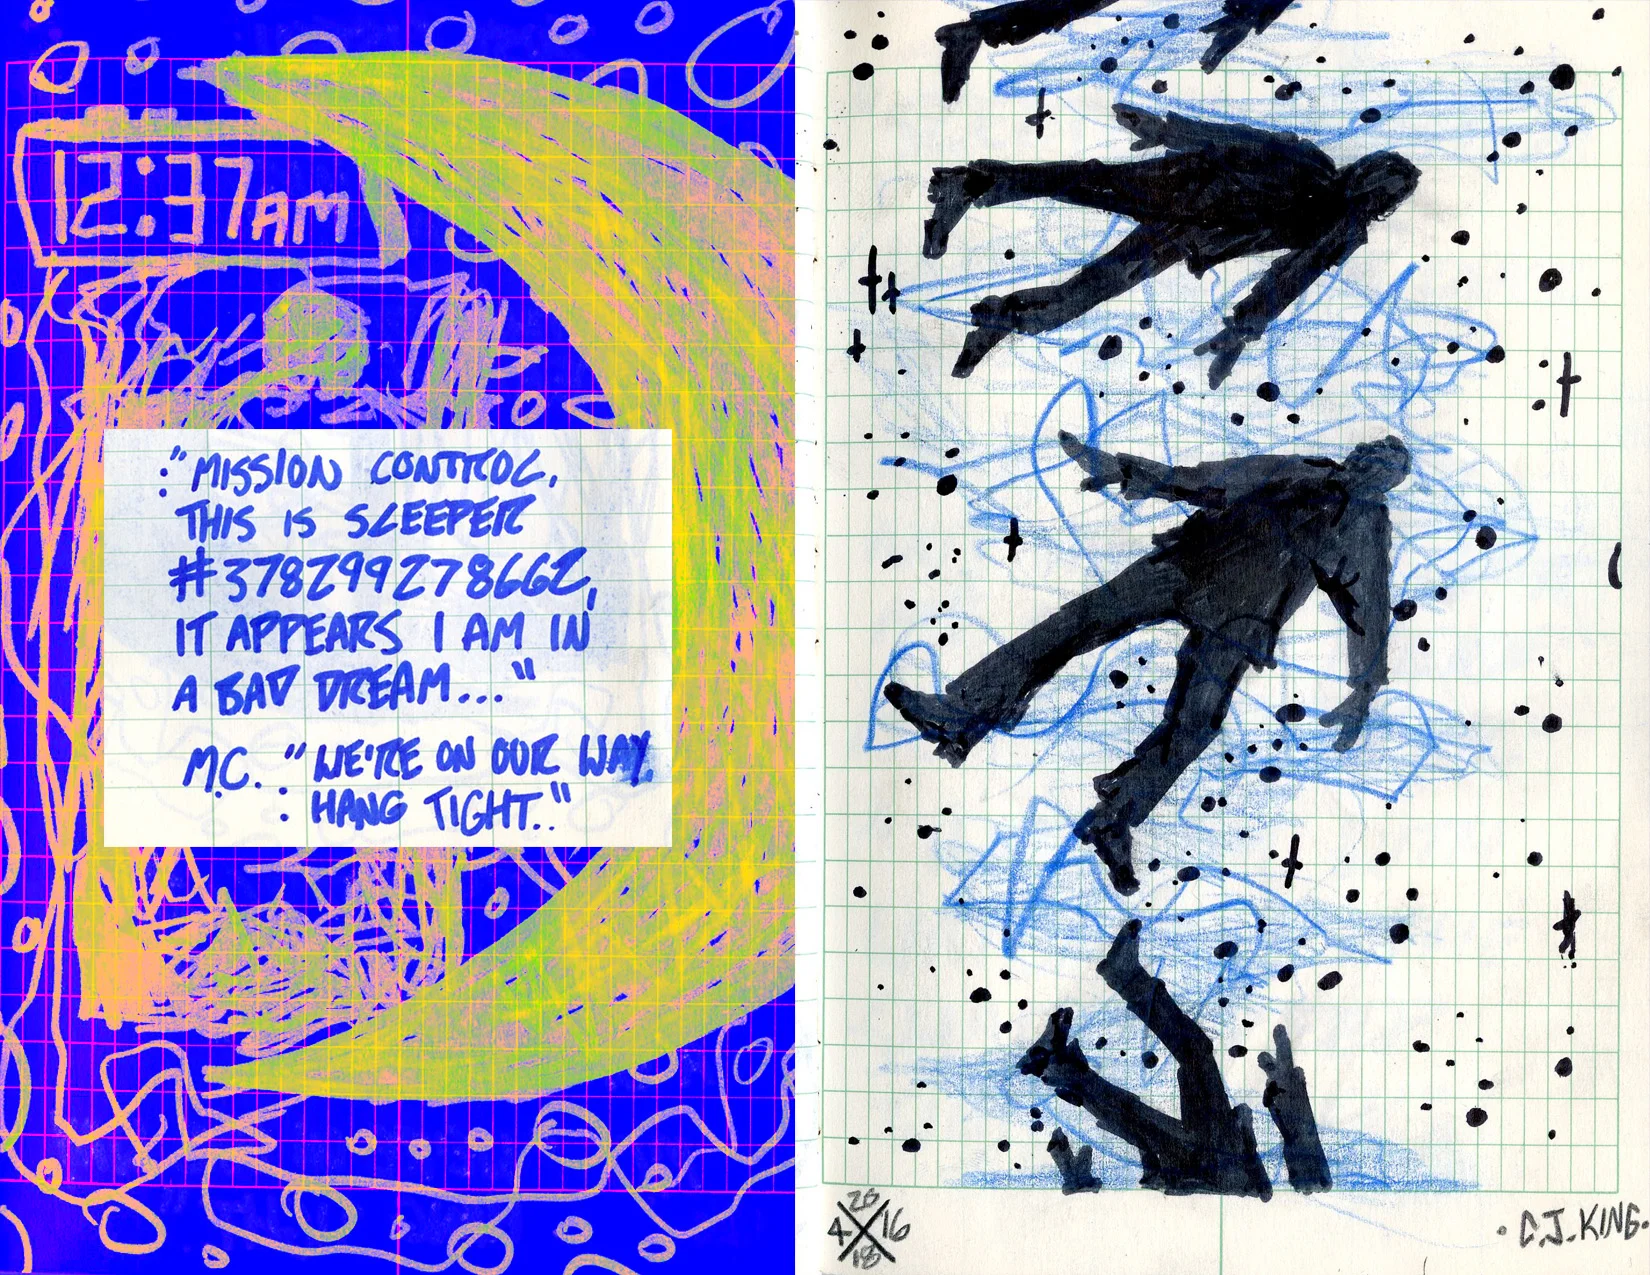 12:37AM
:"MISSION CONTROL,
THIS IS SLEEPER
#378299278662,
IT APPEARS I AM IN
A BAD DREAM..."
M.C. : "WE'RE ON OUR WAY.
HANG TIGHT.."
20
4 16
18
·C.J.KING·